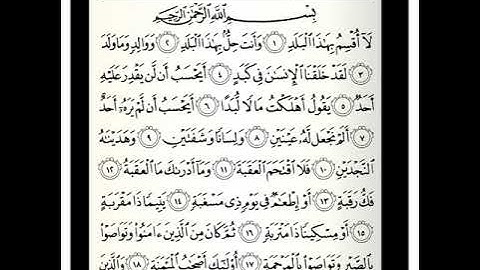 بِسْمِ اللَّهِ الرَّحْمَٰنِ الرَّحِيمِ
لَآ أُقْسِمُ بِهَٰذَا الْبَلَدِ ١ وَأَنتَ حِلٌّ بِهَٰذَا الْبَلَدِ ٢ وَوَالِدٍ وَمَا وَلَدَ
٣ لَقَدْ خَلَقْنَا الْإِنسَٰنَ فِي كَبَدٍ ٤ أَيَحْسَبُ أَن لَّن يَقْدِرَ عَلَيْهِ
أَحَدٌ ٥ يَقُولُ أَهْلَكْتُ مَالًا لُّبَدًا ٦ أَيَحْسَبُ أَن لَّمْ يَرَهُۥٓ أَحَدٌ
٧ أَلَمْ نَجْعَل لَّهُۥ عَيْنَيْنِ ٨ وَلِسَانًا وَشَفَتَيْنِ ٩ وَهَدَيْنَٰهُ
النَّجْدَيْنِ ١٠ فَلَا اقْتَحَمَ الْعَقَبَةَ ١١ وَمَآ أَدْرَىٰكَ مَا الْعَقَبَةُ ١٢
فَكُّ رَقَبَةٍ ١٣ أَوْ إِطْعَٰمٌ فِي يَوْمٍ ذِي مَسْغَبَةٍ ١٤ يَتِيمًا ذَا مَقْرَبَةٍ
١٥ أَوْ مِسْكِينًا ذَا مَتْرَبَةٍ ١٦ ثُمَّ كَانَ مِنَ الَّذِينَ ءَامَنُوا وَتَوَاصَوْا
بِالصَّبْرِ وَتَوَاصَوْا بِالْمَرْحَمَةِ ١٧ أُولَٰٓئِكَ أَصْحَٰبُ الْمَيْمَنَةِ ١٨ وَالَّذِينَ